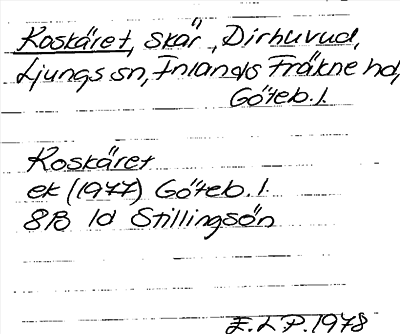 Roskäret, skär, Dirhuvud,
Ljungs sn, Inlands Fräkne hd,
Göteb. l.
Roskäret
ek (1977) Göteb. l.
8B 1d Stillingsön
E.L.P. 1978